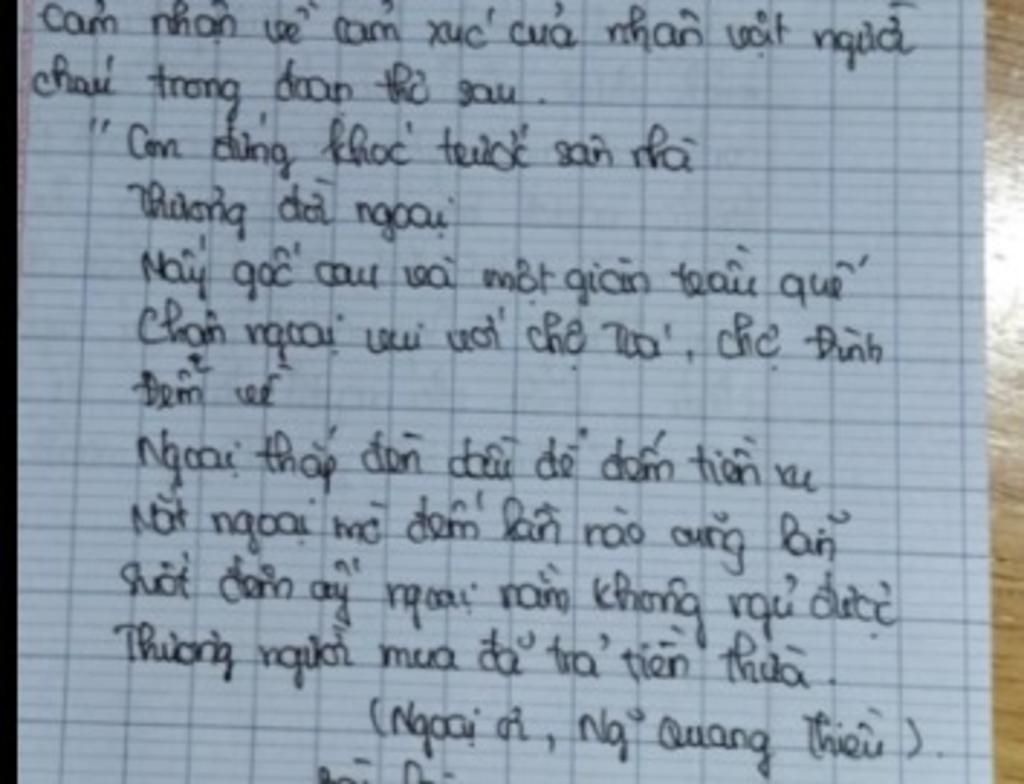 Cảm nhận về cảm xúc của nhân vật người
cháu trong đoạn thơ sau.
"Con đứng khóc trước sân nhà
Thương đời ngoại
Mấy gốc cau và một giàn trầu quế
Chân ngoại vui với chợ Toá, chợ Đình
Đêm về
Ngoại thắp đèn dầu để đếm tiền xu
Mắt ngoại mờ đếm lần nào cũng lẫn
Suốt đêm ấy ngoại nằm không ngủ được
Thương người mua đã trả tiền thừa.
(Ngoại ơi, Ng~ Quang Thiều).